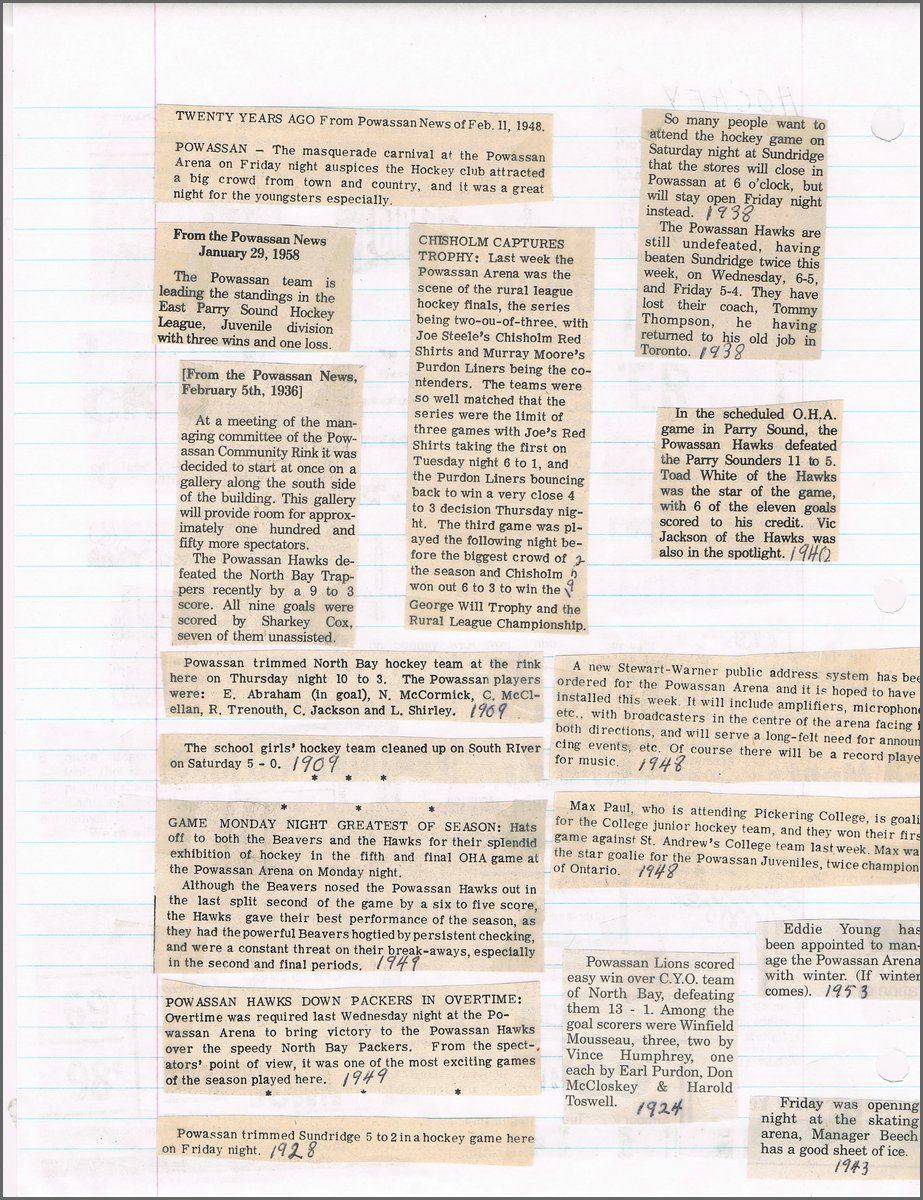 HOCKEY
TWENTY YEARS AGO From Powassan News of Feb. 11, 1948.
POWASSAN — The masquerade carnival at the Powassan
Arena on Friday night auspices the Hockey club attracted
a big crowd from town and country, and it was a great
night for the youngsters especially.
From the Powassan News
January 29, 1958
The Powassan team is
leading the standings in the
East Parry Sound Hockey
League, Juvenile division
with three wins and one loss.
[From the Powassan News,
February 5th, 1936]
At a meeting of the man-
aging committee of the Pow-
assan Community Rink it was
decided to start at once on a
gallery along the south side
of the building. This gallery
will provide room for approx-
imately one hundred and
fifty more spectators.
The Powassan Hawks de-
feated the North Bay Trap-
pers recently by a 9 to 3
score. All nine goals were
scored by Sharkey Cox,
seven of them unassisted.
CHISHOLM CAPTURES
TROPHY: Last week the
Powassan Arena was the
scene of the rural league
hockey finals, the series
being two-ou-of-three, with
Joe Steele's Chisholm Red
Shirts and Murray Moore's
Purdon Liners being the co-
ntenders. The teams were
so well matched that the
series were the limit of
three games with Joe's Red
Shirts taking the first on
Tuesday night 6 to 1, and
the Purdon Liners bouncing
back to win a very close 4
to 3 decision Thursday nig-
ht. The third game was pl-
ayed the following night be-
fore the biggest crowd of
the season and Chisholm
won out 6 to 3 to win the
George Will Trophy and the
Rural League Championship.
So many people want to
attend the hockey game on
Saturday night at Sundridge
that the stores will close in
Powassan at 6 o'clock, but
will stay open Friday night
instead. 1938
The Powassan Hawks are
still undefeated, having
beaten Sundridge twice this
week, on Wednesday, 6-5,
and Friday 5-4. They have
lost their coach, Tommy
Thompson, he having
returned to his old job in
Toronto. 1938
In the scheduled O.H.A.
game in Parry Sound, the
Powassan Hawks defeated
the Parry Sounders 11 to 5.
Toad White of the Hawks
was the star of the game,
with 6 of the eleven goals
scored to his credit. Vic
Jackson of the Hawks was
also in the spotlight. 1940
Powassan trimmed North Bay hockey team at the rink
here on Thursday night 10 to 3. The Powassan players
were: E. Abraham (in goal), N. McCormick, C. McCl-
ellan, R. Trenouth, C. Jackson and L. Shirley. 1909
The school girls' hockey team cleaned up on South RIver
on Saturday 5 - 0. 1909
* * *
* * *
GAME MONDAY NIGHT GREATEST OF SEASON: Hats
off to both the Beavers and the Hawks for their splendid
exhibition of hockey in the fifth and final OHA game at
the Powassan Arena on Monday night.
Although the Beavers nosed the Powassan Hawks out in
the last split second of the game by a six to five score,
the Hawks gave their best performance of the season, as
they had the powerful Beavers hogtied by persistent checking,
and were a constant threat on their break-aways, especially
in the second and final periods. 1949
POWASSAN HAWKS DOWN PACKERS IN OVERTIME:
Overtime was required last Wednesday night at the Po-
wassan Arena to bring victory to the Powassan Hawks
over the speedy North Bay Packers. From the spect-
ators' point of view, it was one of the most exciting games
of the season played here. 1949
* * *
Powassan trimmed Sundridge 5 to 2 in a hockey game here
on Friday night. 1928
A new Stewart-Warner public address system has bee
ordered for the Powassan Arena and it is hoped to have
installed this week. It will include amplifiers, microphone
etc., with broadcasters in the centre of the arena facing i
both directions, and will serve a long-felt need for announ
cing events, etc. Of course there will be a record playe
for music. 1948
Max Paul, who is attending Pickering College, is goali
for the College junior hockey team, and they won their firs
game against St. Andrew's College team last week. Max wa
the star goalie for the Powassan Juveniles, twice champion
of Ontario. 1948
Powassan Lions scored
easy win over C.Y.O. team
of North Bay, defeating
them 13 - 1. Among the
goal scorers were Winfield
Mousseau, three, two by
Vince Humphrey, one
each by Earl Purdon, Don
McCloskey & Harold
Toswell. 1924
Eddie Young has
been appointed to man-
age the Powassan Arena
with winter. (If winter
comes). 1953
Friday was opening
night at the skating
arena, Manager Beech
has a good sheet of ice.
1943